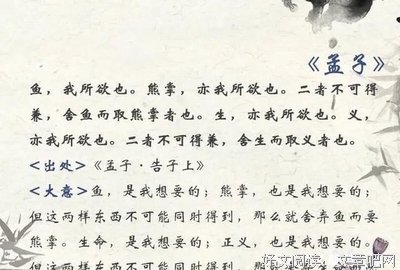 《孟子》
鱼，我所欲也。熊掌，亦我所欲也。二者不可得
兼，舍鱼而取熊掌者也。生，亦我所欲也。义，
亦我所欲也。二者不可得兼，舍生而取义者也。
<出处>《孟子·告子上》
<大意>鱼，是我想要的；熊掌，也是我想要的；
但这两样东西不可能同时得到，那么就舍弃鱼而要
熊掌。生命，是我想要的；正义，也是我想要的。
好文阅读，文章吧网